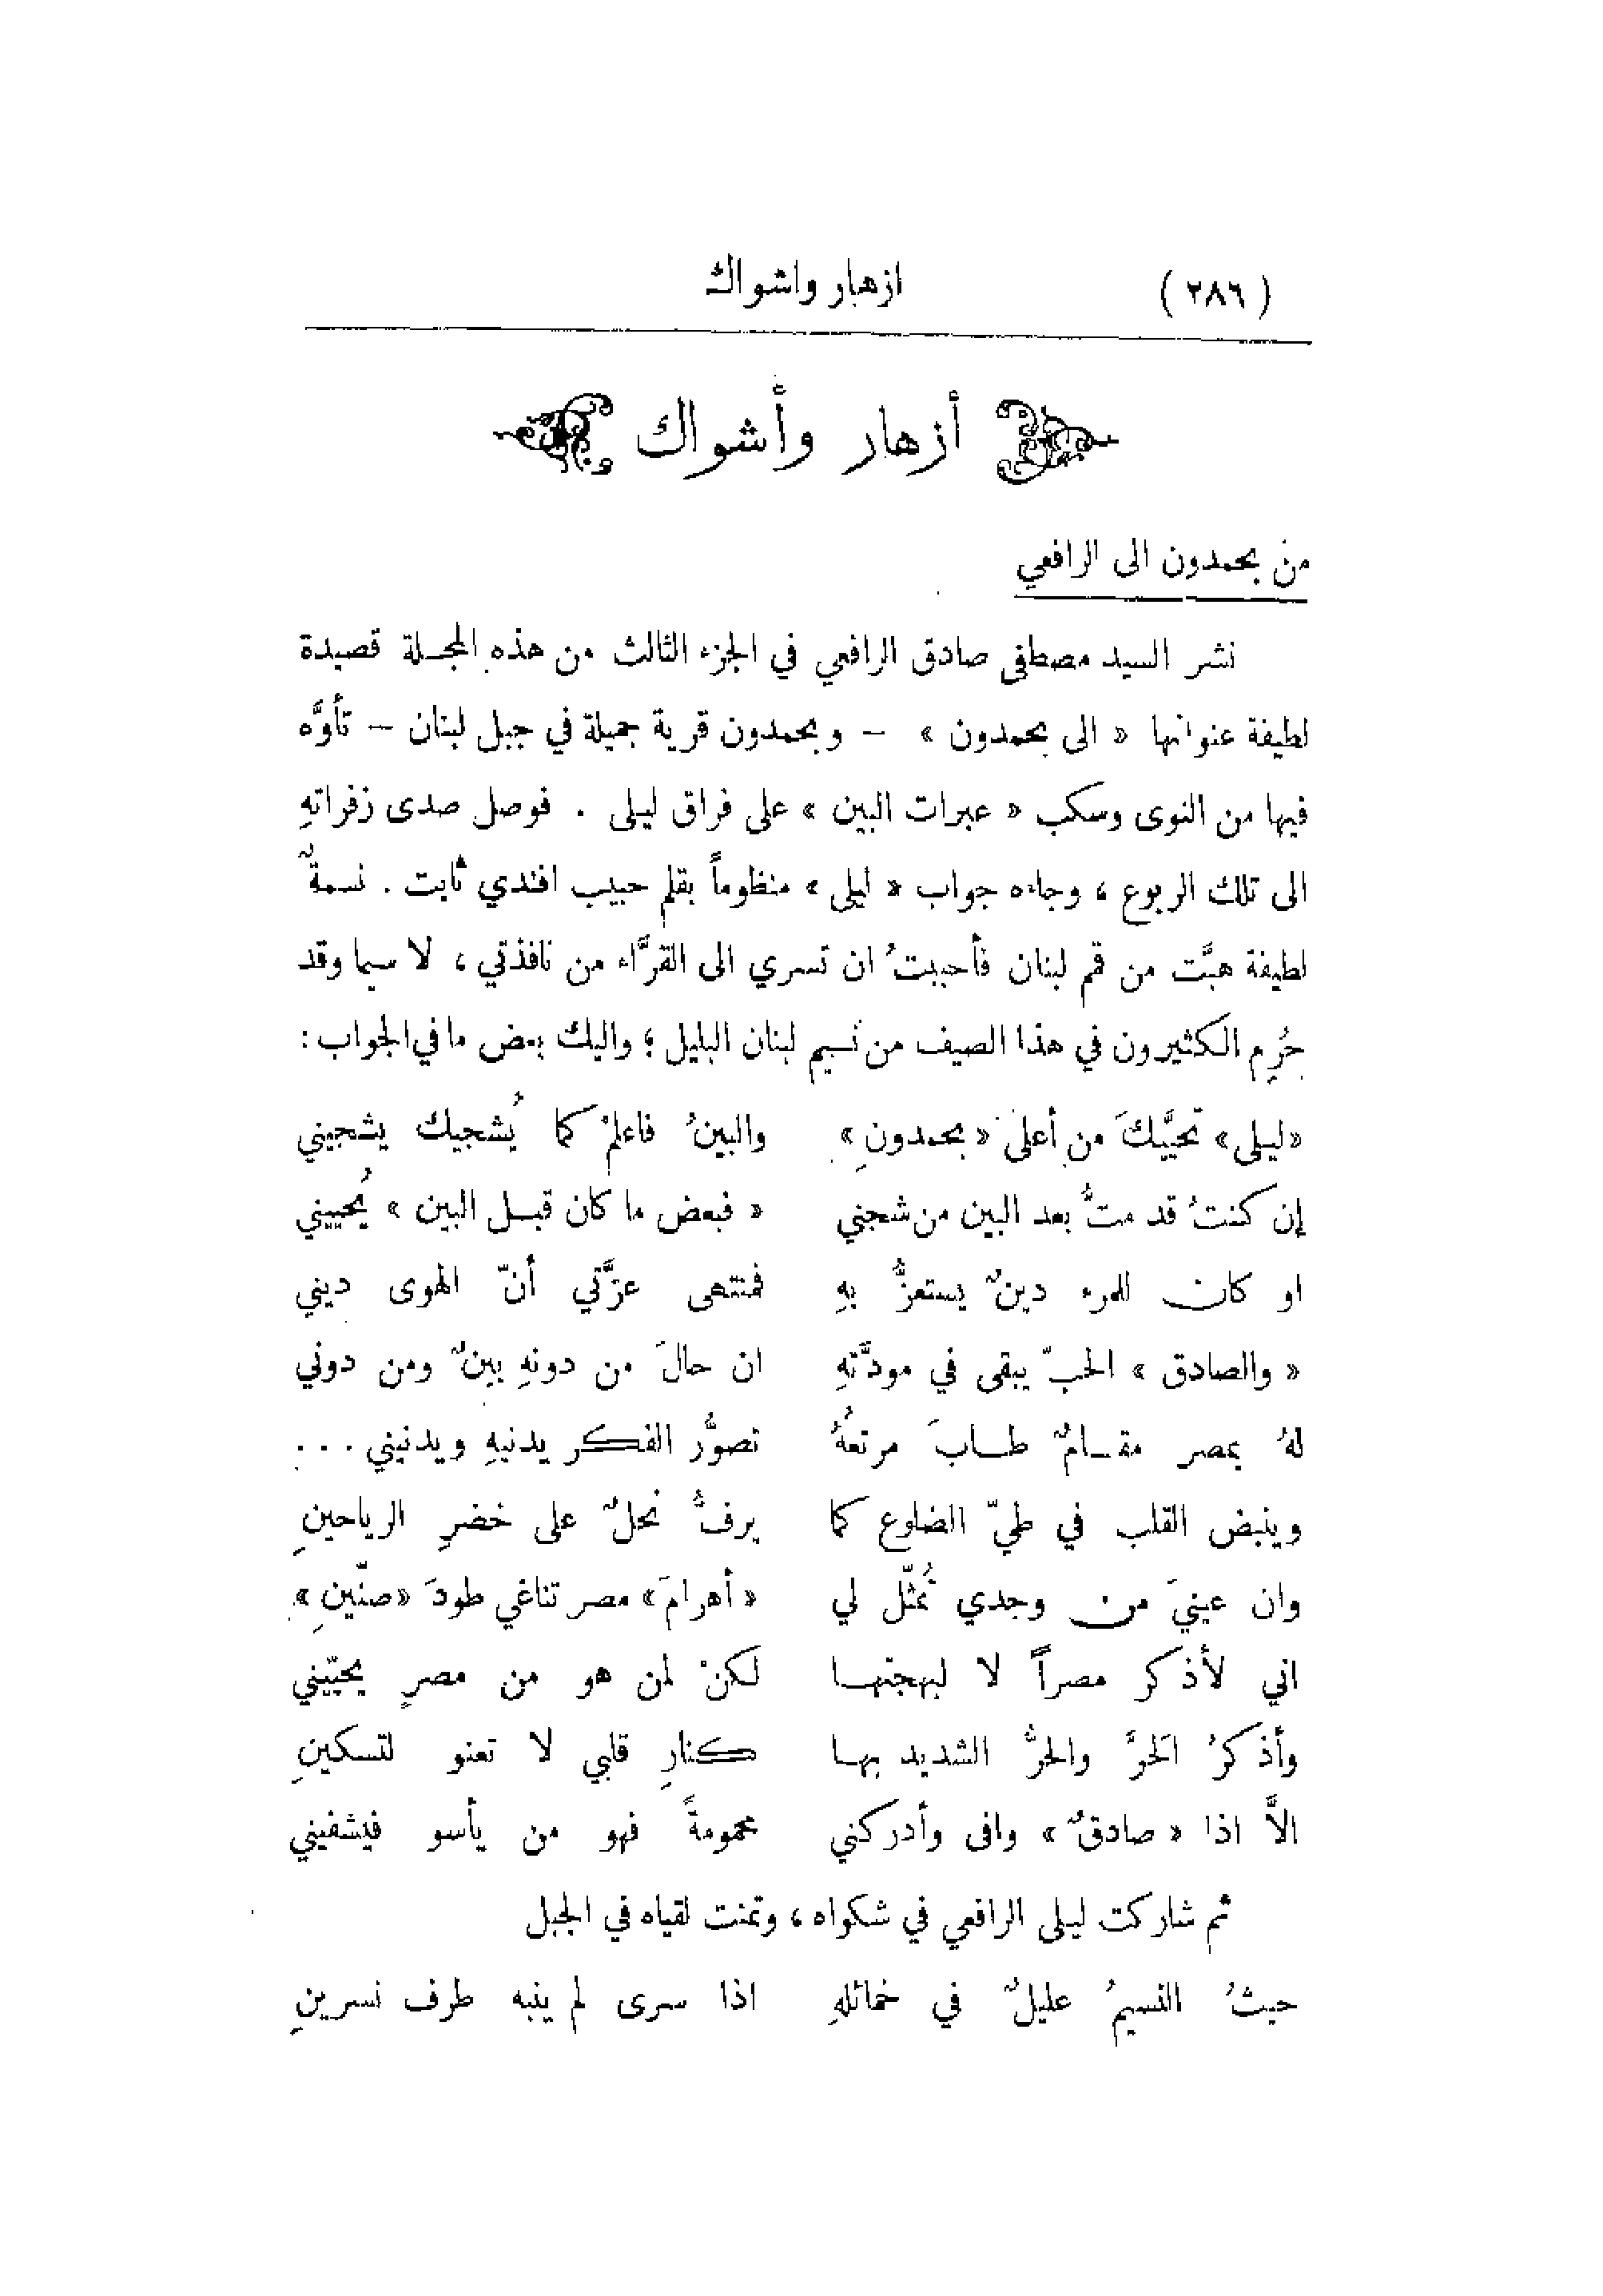 ( ٢٨٦ ) ازهار واشواك
أزهار وأشواك
من بحمدون الى الرافعي
نشر السيد مصطفى صادق الرافعي في الجزء الثالث من هذه المجلة قصيدة
لطيفة عنوانها « الى بحمدون » – وبحمدون قرية جميلة في جبل لبنان – تأوَّه
فيها من النوى وسكب « عبرات البين » على فراق ليلى . فوصل صدى زفراتهِ
الى تلك الربوع ، وجاءه جواب « ليلى » منظوماً بقلم حبيب افندي ثابت . نسمةٌ
لطيفة هبَّت من قمم لبنان فأحببتُ ان تسري الى القرَّاء من نافذتي ، لا سيما وقد
حُرِم الكثيرون في هذا الصيف من نسيم لبنان البليل ؛ واليك بعض ما في الجواب :
«ليلى» تحيّيكَ من أعلى «بحمدونِ» والبينُ فاعلمْ كما يُشجيك يشجيني
إن كنتُ قد متُّ بعد البين من شجني « فبعض ما كان قبل البين » يُحييني
او كان للمرء دينٌ يستعزُّ بهِ فمنتهى عزَّتي أنّ الهوى ديني
« والصادق » الحبّ يبقى في مودَّتهِ ان حالَ من دونهِ بينٌ ومن دوني
لهُ بمصر مقامٌ طابَ مرتعُهُ تصوُّر الفكر يدنيهِ ويدنيني ...
وينبض القلب في طيّ الضلوع كما يرفُّ نحلٌ على خضرِ الرياحينِ
وان عينيَ من وجدي تُمثّل لي « أهرامَ» مصر تناغي طودَ «صنّينِ»
اني لأذكر مصراً لا لبهجتها لكنْ لمن هو من مصرٍ يحيّيني
وأذكرُ الحَرَّ والحرُّ الشديد بها كنارِ قلبي لا تعنو لتسكينِ
الاَّ اذا « صادقٌ » وافى وأدركني محمومةً فهو من يأسو فيشفيني
ثم شاركت ليلى الرافعي في شكواه ، وتمنت لقياه في الجبل
حيثُ النسيمُ عليلٌ في خمائلهِ اذا سرى لم ينبه طرف نسرينِ